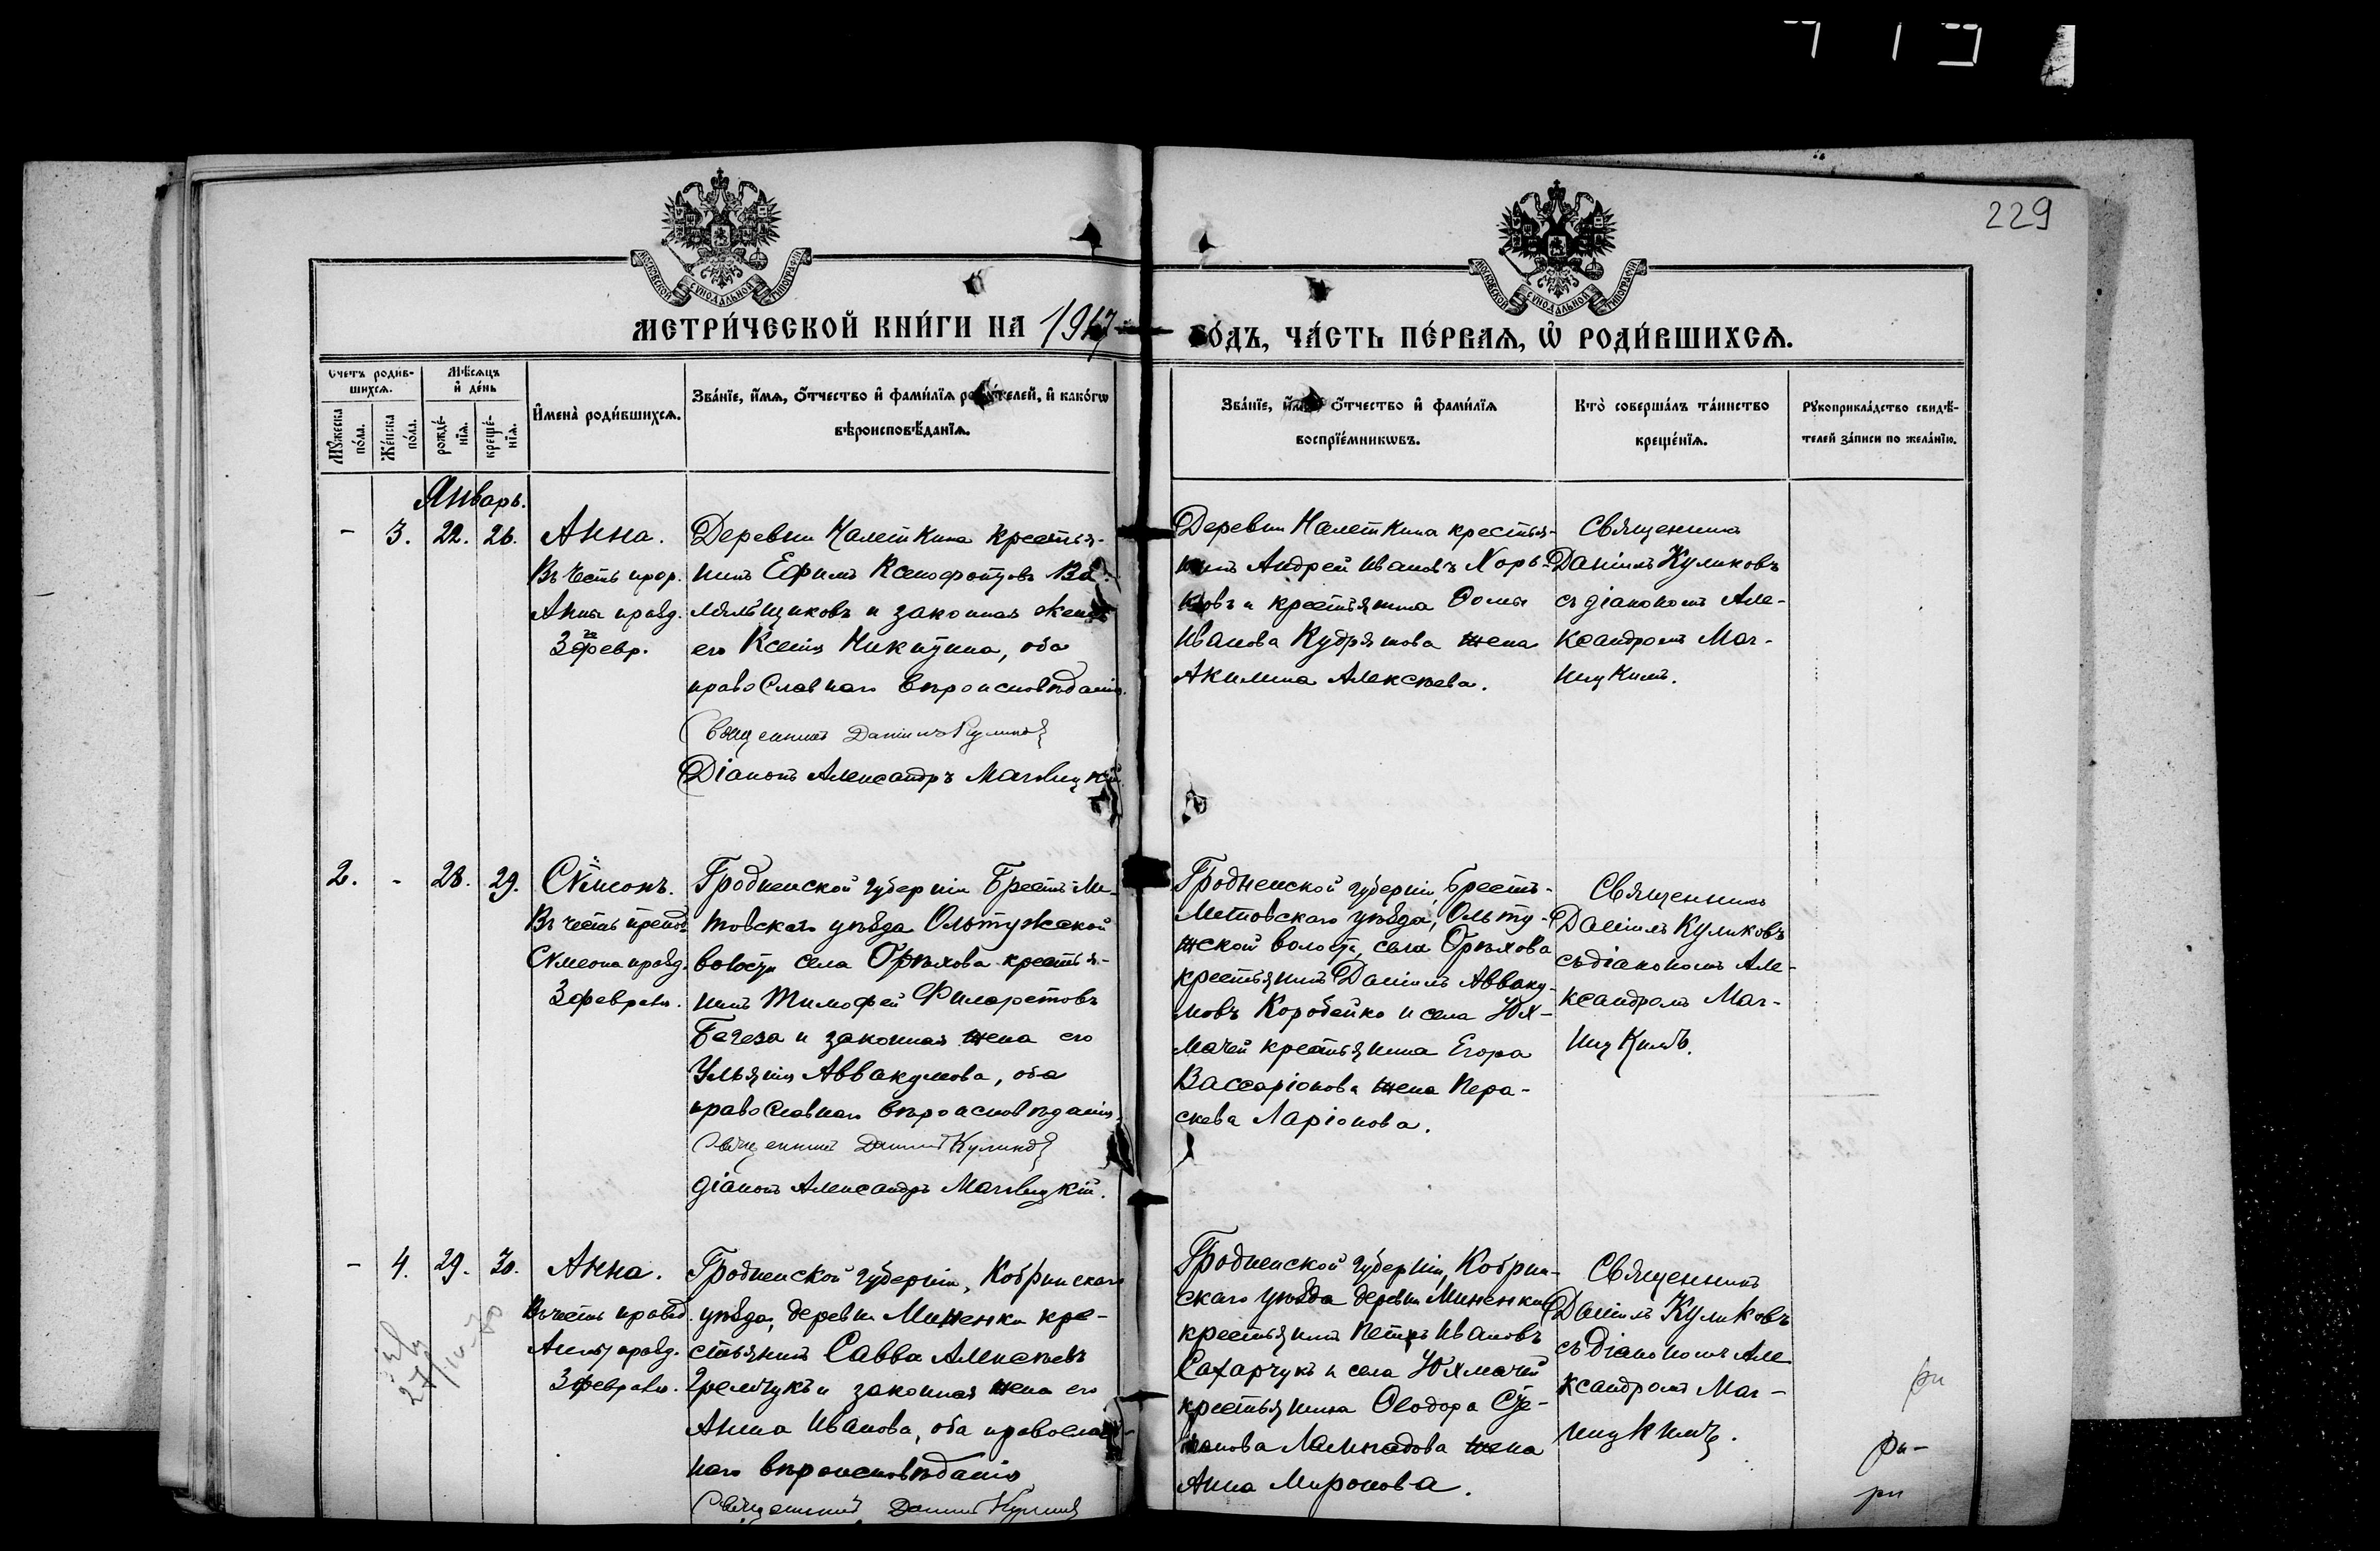 229
МОСКОВСКОЙ СѴНОДАЛЬНОЙ ТИПОГРАФІИ
МОСКОВСКОЙ СѴНОДАЛЬНОЙ ТИПОГРАФІИ
МЕТРИ́ЧЕСКОЙ КНИ́ГИ НА 1917
ГО́ДЪ, ЧА́СТЬ ПЕ́РВАЯ, Ѡ РОДИ́ВШИХСЯ.
Счетъ роди́в-
шихся.
Мѣ́сяцъ
и де́нь
Му́жеска
по́ла.
Же́нска
по́ла.
рожде́-
нїя.
креще́-
нїя.
Имена̀ роди́вшихся.
Зва́нїе, и́мя, о́тчество и фами́лїя роди́телей, и како́гѡ
вѣроисповѣ́данїя.
Зва́нїе, и́мя, о́тчество и фами́лїя
воспрїе́мникѡвъ.
Кто̀ соверша́лъ та́инство
креще́нїя.
Рꙋкоприкла́дство свидѣ́-
телей за́писи по жела́нїю.
Январь.
- 3. 22. 26.
Анна.
Въ честь прор.
Анны празд.
3го февр.
Деревни Налеткина крестья-
нинъ Ефимъ Ксенофонтовъ
и законная жена
его Ксенія Никитина, оба
православнаго вѣроисповѣданія.
Священникъ Даніилъ Куликовъ
Діаконъ Александръ
Деревни Налеткина крестья-
нинъ Андрей Ивановъ Хорь-
ковъ и крестьянина Ѳомы
Иванова Кудряшова жена
Акилина Алексѣева.
Священникъ
Даніилъ Куликовъ
съ діакономъ Але-
ксандромъ Мач-
ицкимъ.
2. - 28. 29.
Сѵмеонъ.
Въ честь препод.
Сѵмеона празд.
3 февраля.
Гродненской губерніи Брестъ-Ли-
товскаго уѣзда Ольтужской
волости села Орѣхова крестья-
нинъ Тимофей Филаретовъ
Бегеза и законная жена его
Ульянія Аввакумова, оба
православнаго вѣроисповѣданія.
Священникъ Даніилъ Куликовъ
діаконъ Александръ
Гродненской губерніи, Брестъ-
Литовскаго уѣзда, Ольту-
жской волости, села Орѣхова
крестьянинъ Даніилъ Авваку-
мовъ Коробейко и села Юх-
мачей крестьянина Егора
Вассаріонова жена Пара-
скева Ларіонова.
Священникъ
Даніилъ Куликовъ
съ діакономъ Але-
ксандромъ Мач-
ицкимъ.
- 4. 29. 30.
Анна.
Въ честь правед.
Анны празд.
3 февраля.
Гродненской губерніи, Кобринскаго
уѣзда, деревни Миненки кре-
стьянинъ Савва Алексѣевъ
Гремчукъ и законная жена его
Анна Иванова, оба православ-
наго вѣроисповѣданія
Священникъ Даніилъ Куликовъ
Гродненской губерніи, Кобрин-
скаго уѣзда деревни Миненки
крестьянинъ Петръ Ивановъ
Сахарчукъ и села Юхмачей
крестьянина Ѳеодора Сте-
панова Лампадова жена
Анна Миронова.
Священникъ
Даніилъ Куликовъ
съ діакономъ Але
ксандромъ Мач-
ицкимъ.